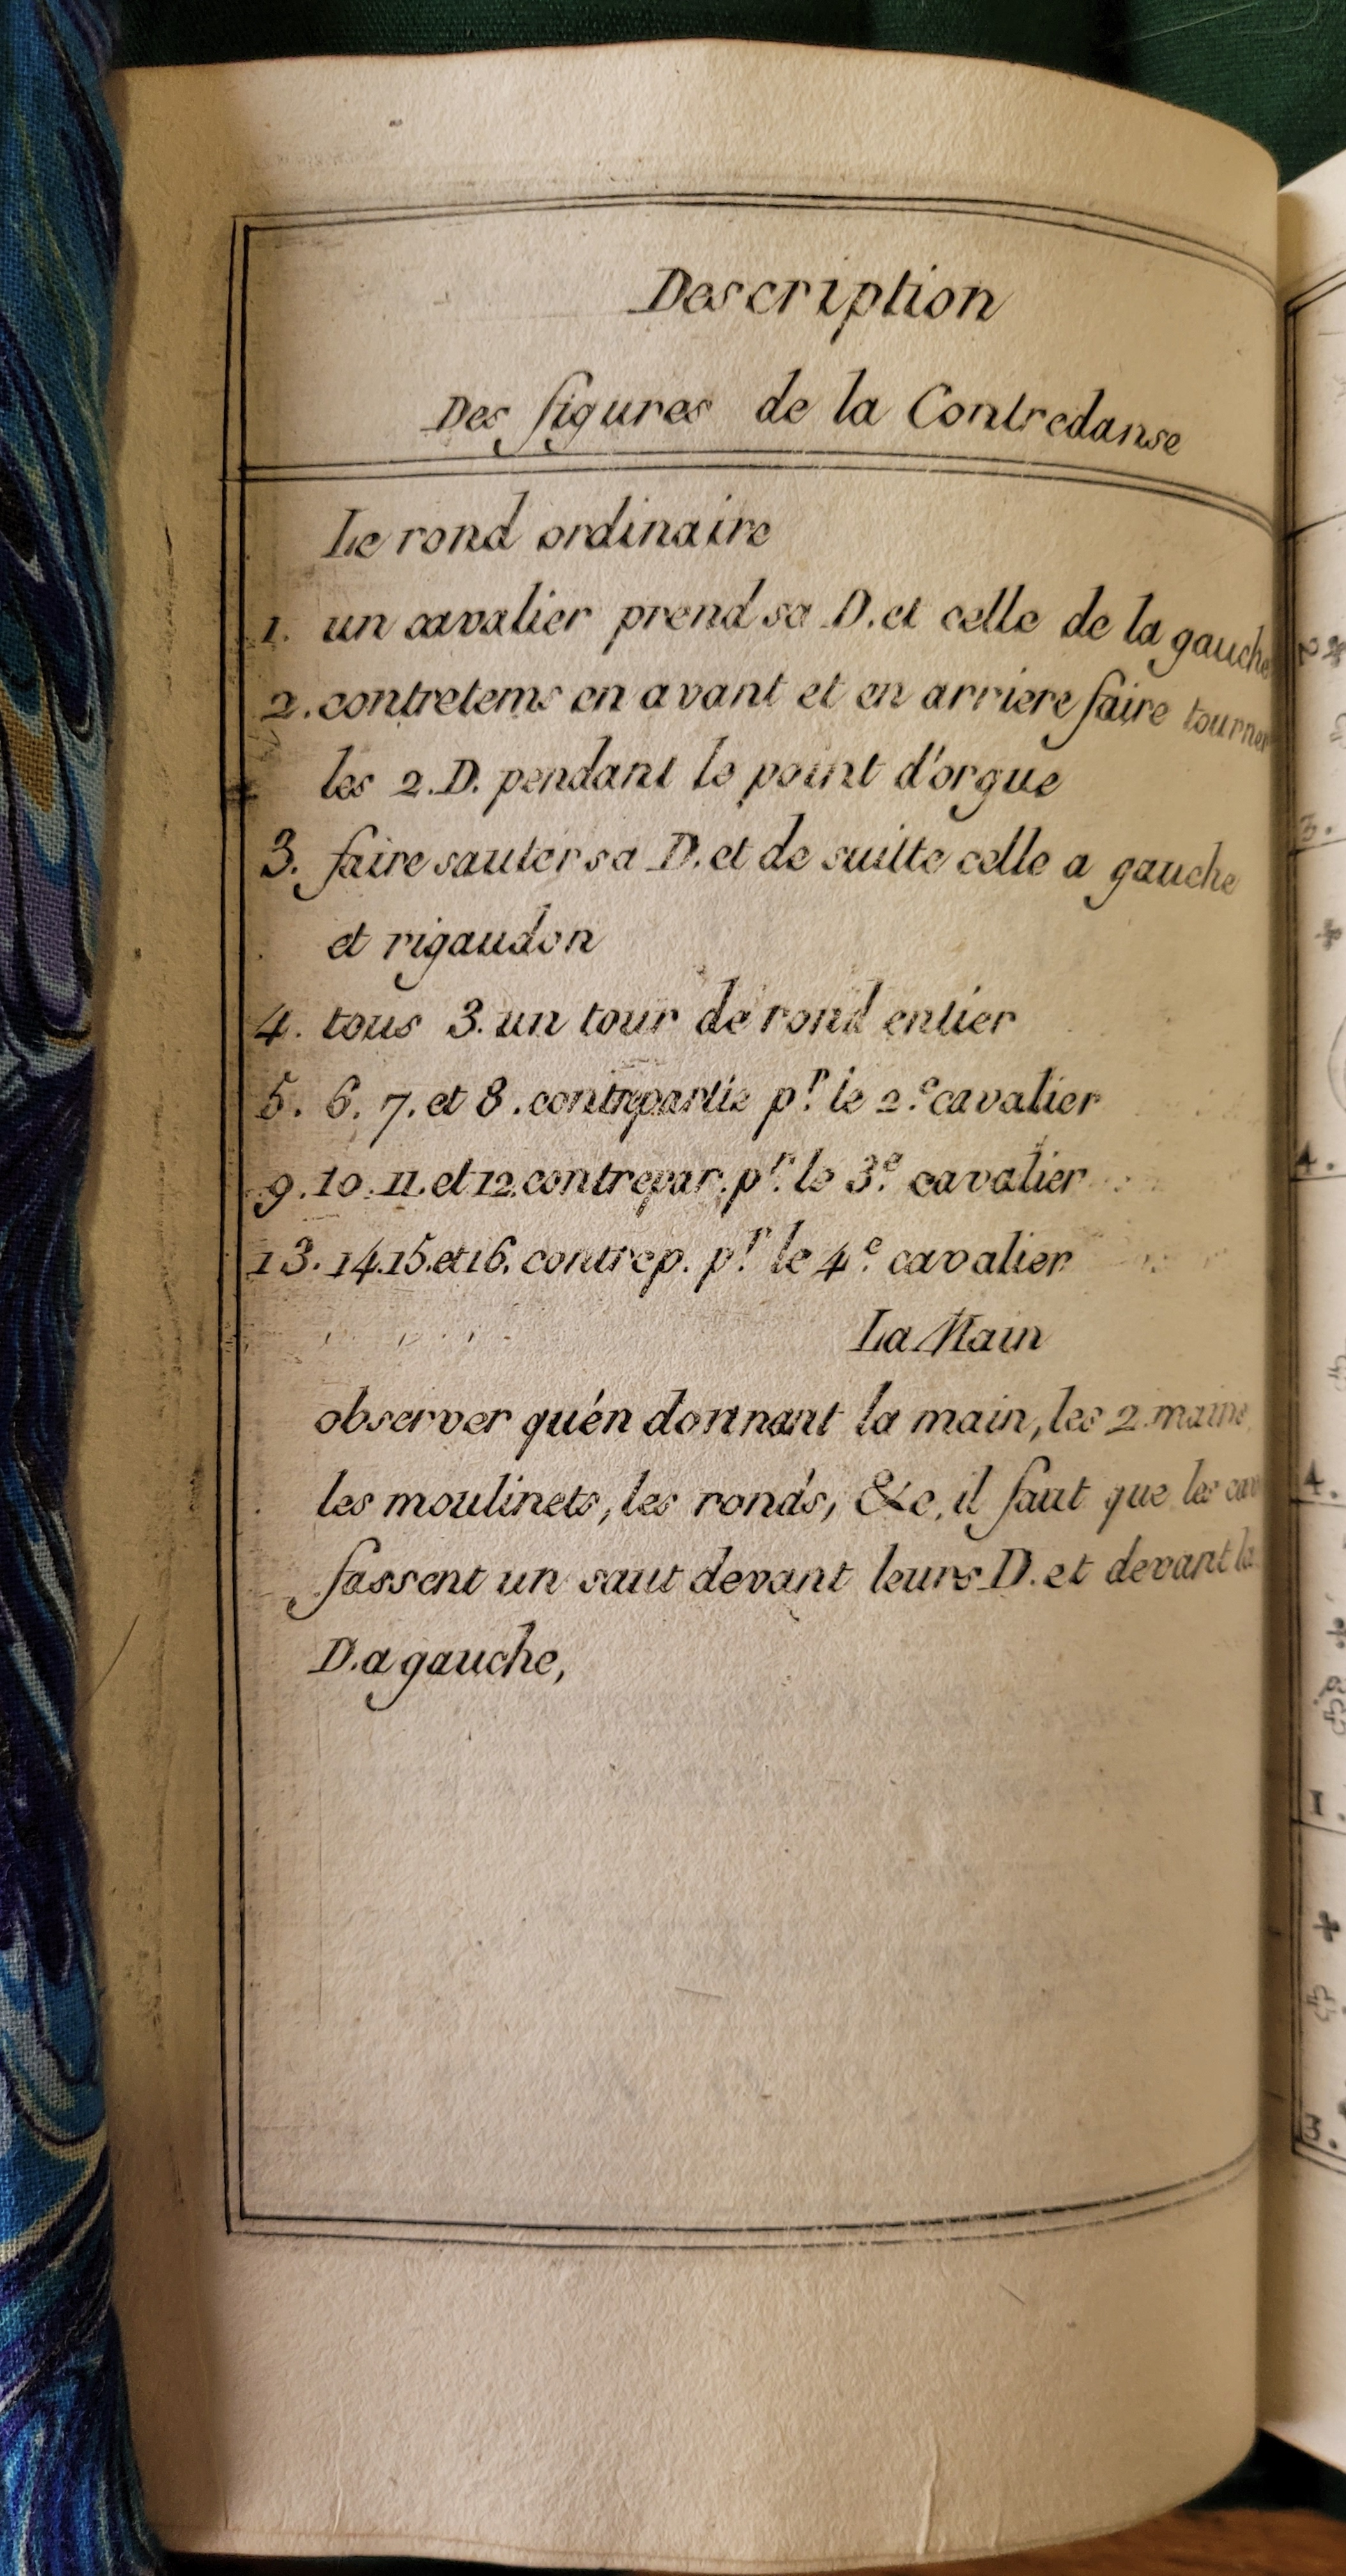 Description
Des figures de la Contredanse
Le rond ordinaire
1. un cavalier prend sa D. et celle de la gauche
2. contretems en avant et en arriere faire tourner
les 2. D. pendant le point d'orgue
3. faire sauter sa D. et de suitte celle a gauche
et rigaudon
4. tous 3. un tour de rond entier
5. 6. 7. et 8. contrepartie pr. le 2.e cavalier
9. 10. 11. et 12. contrepar. pr. le 3.e cavalier
13. 14. 15. et 16. contrep. pr. le 4.e cavalier
La Main
observer qu'en donnant la main, les 2 mains,
les moulinets, les ronds, &c, il faut que les cav
fassent un saut devant leurs D. et devant la
D. a gauche,